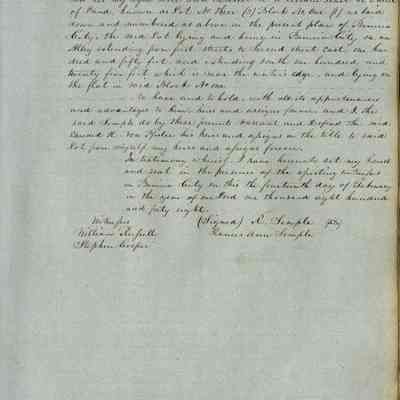 of Land, known as Lot No Three (3) Block No One (1) as laid
down and numbered as above in the present plan of Benicia
City, the said Lot lying and being in Benicia City on an
Alley extending from first streets to Second street East, one hun
dred and fifty feet, and extending South one hundred and
twenty five feet which is near the water's edge, and lying on
the flat in said Block No one
To have and to hold, with all its appurtenances
and advantages to him, heirs and assigns forever, and I the
said Temple do by these presents warrant and defend the said
R. Von Pfister his heirs and assigns in the title to said
Lot from myself my heirs and assigns forever.
In testimony whereof, I have hereunto set my hand
and seal in the presence of the
in Benicia City on this the fourteenth day of February
in the year of our Lord one thousand eight hundred
and forty eight.
Witnesses (Signed) R. Semple
William Russell Frances Ann Semple
Stephen Cooper